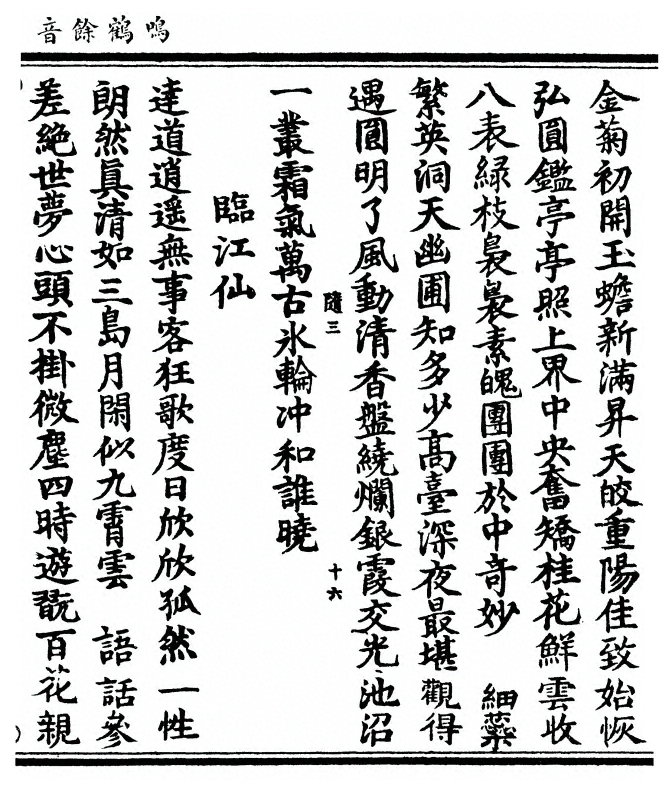 鳴鶴餘音
金菊初開玉蟾新滿昇天皎重陽佳致始恢
弘圓鑑亭亭照上界中央奮矯桂花鮮雲收
八表緑枝裊裊素魄團團於中竒妙　細蘂
繁英洞天幽圃知多少髙臺深夜最堪觀得
遇圓明了風動清香盤繞爛銀霞交光池沼
隨三
十六
一叢霜氣萬古氷輪冲和誰曉
臨江仙
達道逍遥無事客狂歌度日欣欣孤然一性
朗然真清如三島月閑似九霄雲　語話參
差絶世夢心頭不掛微塵四時遊翫百花親